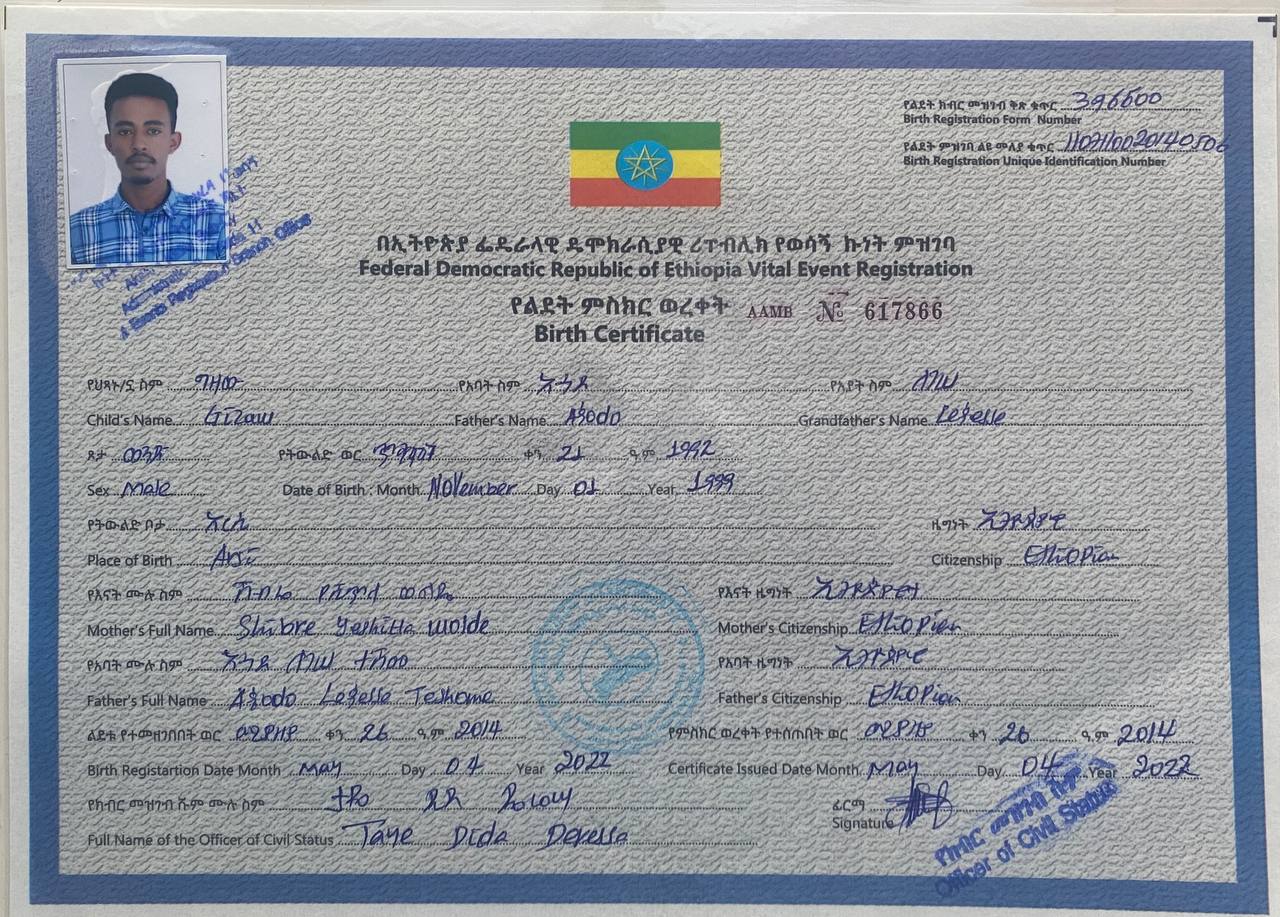 የልደት ክብር መዝገብ ቅጽ ቁጥር 396600
Birth Registration Form Number
የልደት ምዝገባ ልዩ መለያ ቁጥር
Birth Registration Unique Identification Number
በኢትዮጵያ ፌዴራላዊ ዲሞክራሲያዊ ሪፐብሊክ የወሳኝ ኩነት ምዝገባ
Federal Democratic Republic of Ethiopia Vital Event Registration
የልደት ምስክር ወረቀት AAMB № 617866
Birth Certificate
የህጻኑ/ኗ ስም ግዛው የአባት ስም የአያት ስም
Child's Name Gizaw Father's Name Grandfather's Name
ጾታ ወንድ የትውልድ ወር ጥቅምት ቀን 21 ዓ.ም 1992
Sex Male Date of Birth : Month November Day 01 Year 1999
የትውልድ ቦታ አርሲ ዜግነት ኢትዮጵያዊ
Place of Birth Arsi Citizenship Ethiopian
የእናት ሙሉ ስም የእናት ዜግነት ኢትዮጵያዊት
Mother's Full Name Shibre Yeshitla Wolde Mother's Citizenship Ethiopian
የአባት ሙሉ ስም ተሾመ የአባት ዜግነት ኢትዮጵያዊ
Father's Full Name Teshome Father's Citizenship Ethiopian
ልደቱ የተመዘገበበት ወር ሚያዝያ ቀን 26 ዓ.ም 2014 የምስክር ወረቀት የተሰጠበት ወር ሚያዝያ ቀን 26 ዓ.ም 2014
Birth Registartion Date Month May Day 04 Year 2022 Certificate Issued Date Month May Day 04 Year 2022
የክብር መዝገብ ሹም ሙሉ ስም ታዬ ዲዳ ፊርማ
Full Name of the Officer of Civil Status Taye Dida Deressa Signature
የክብር መዝገብ ሹም
Officer of Civil Status